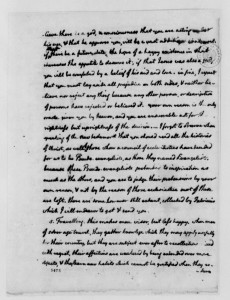 there is a god, a consciousness that you are acting under
his eye, & that he approves you, will be a vast additional incitement.
if that there be a future state, the hope of a happy existence in that
increases the appetite to deserve it; if that Jesus was also a god,
you will be comforted by a belief of his aid and love. in fine, I repeat
that you must lay aside all prejudice on both sides, & neither be-
lieve nor reject any thing because any other person, or description
of persons have rejected or believed it. your own reason is the only
oracle given you by heaven, and you are answerable not for the
rightness but uprightness of the decision. I forgot to observe when
speaking of the New testament that you should read all the histories
of Christ, as well of those whom a council of ecclesiastics have decided
for us to be Pseudo-evangelists, as those they named Evangelists,
because these Pseudo-evangelists pretended to inspiration as
much as the others, and you are to judge their pretensions by your
own reason, & not by the reason of those ecclesiastics. most of these
are lost. there are some however still extant, collected by Fabricius
which I will endeavor to get & send you.
5. Travelling. this makes men wiser, but less happy. when men
of sober age travel, they gather knowlege which they may apply usefully
for their country, but they are subject ever after to recollections mixed
with regret, their affections are weakened by being extended over more
objects, & they learn new habits which cannot be gratified when they re-